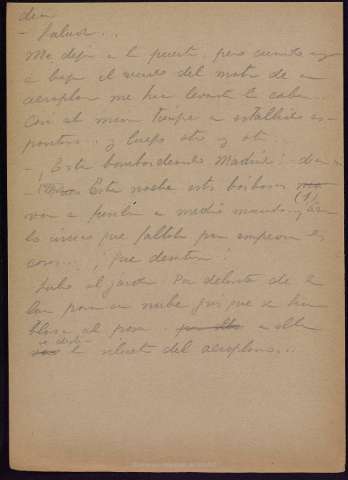 dice.
- Salud...
Me dejo a la puerta, pero cuando voy
a bajar el ruido del motor de un
aeroplano me hace levantar la cabeza.
Casi al mismo tiempo un estallido es-
pantoso... y luego otro y otro...
- ¡Están bombardeando Madrid! dice
- Esta noche estos bárbaros
van a fusilar a medio mundo y
lo único que faltaba para empeorar las
cosas... ¡Que desastre!
Salto al jardín. Por delante de la
luna pasa una nube gris que se hace
blanca al pasar.
la silueta del aeroplano...